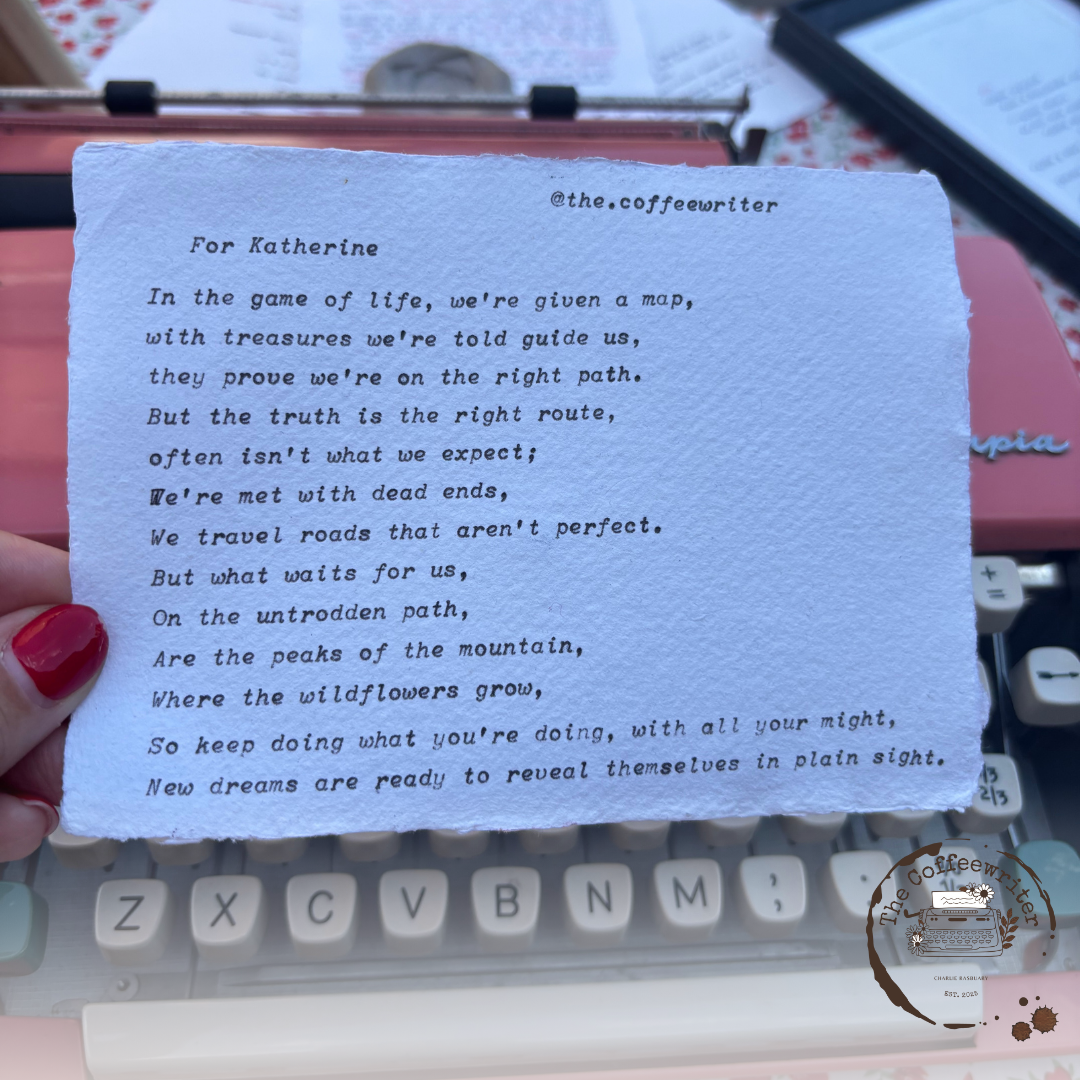 @the.coffeewriter
For Katherine
In the game of life, we're given a map,
with treasures we're told guide us,
they prove we're on the right path.
But the truth is the right route,
often isn't what we expect;
We're met with dead ends,
We travel roads that aren't perfect.
But what waits for us,
On the untrodden path,
Are the peaks of the mountain,
Where the wildflowers grow,
So keep doing what you're doing, with all your might,
New dreams are ready to reveal themselves in plain sight.
+
=
2/3
Z X C V B N M ; .
The Coffeewriter
CHARLIE RASBUARY